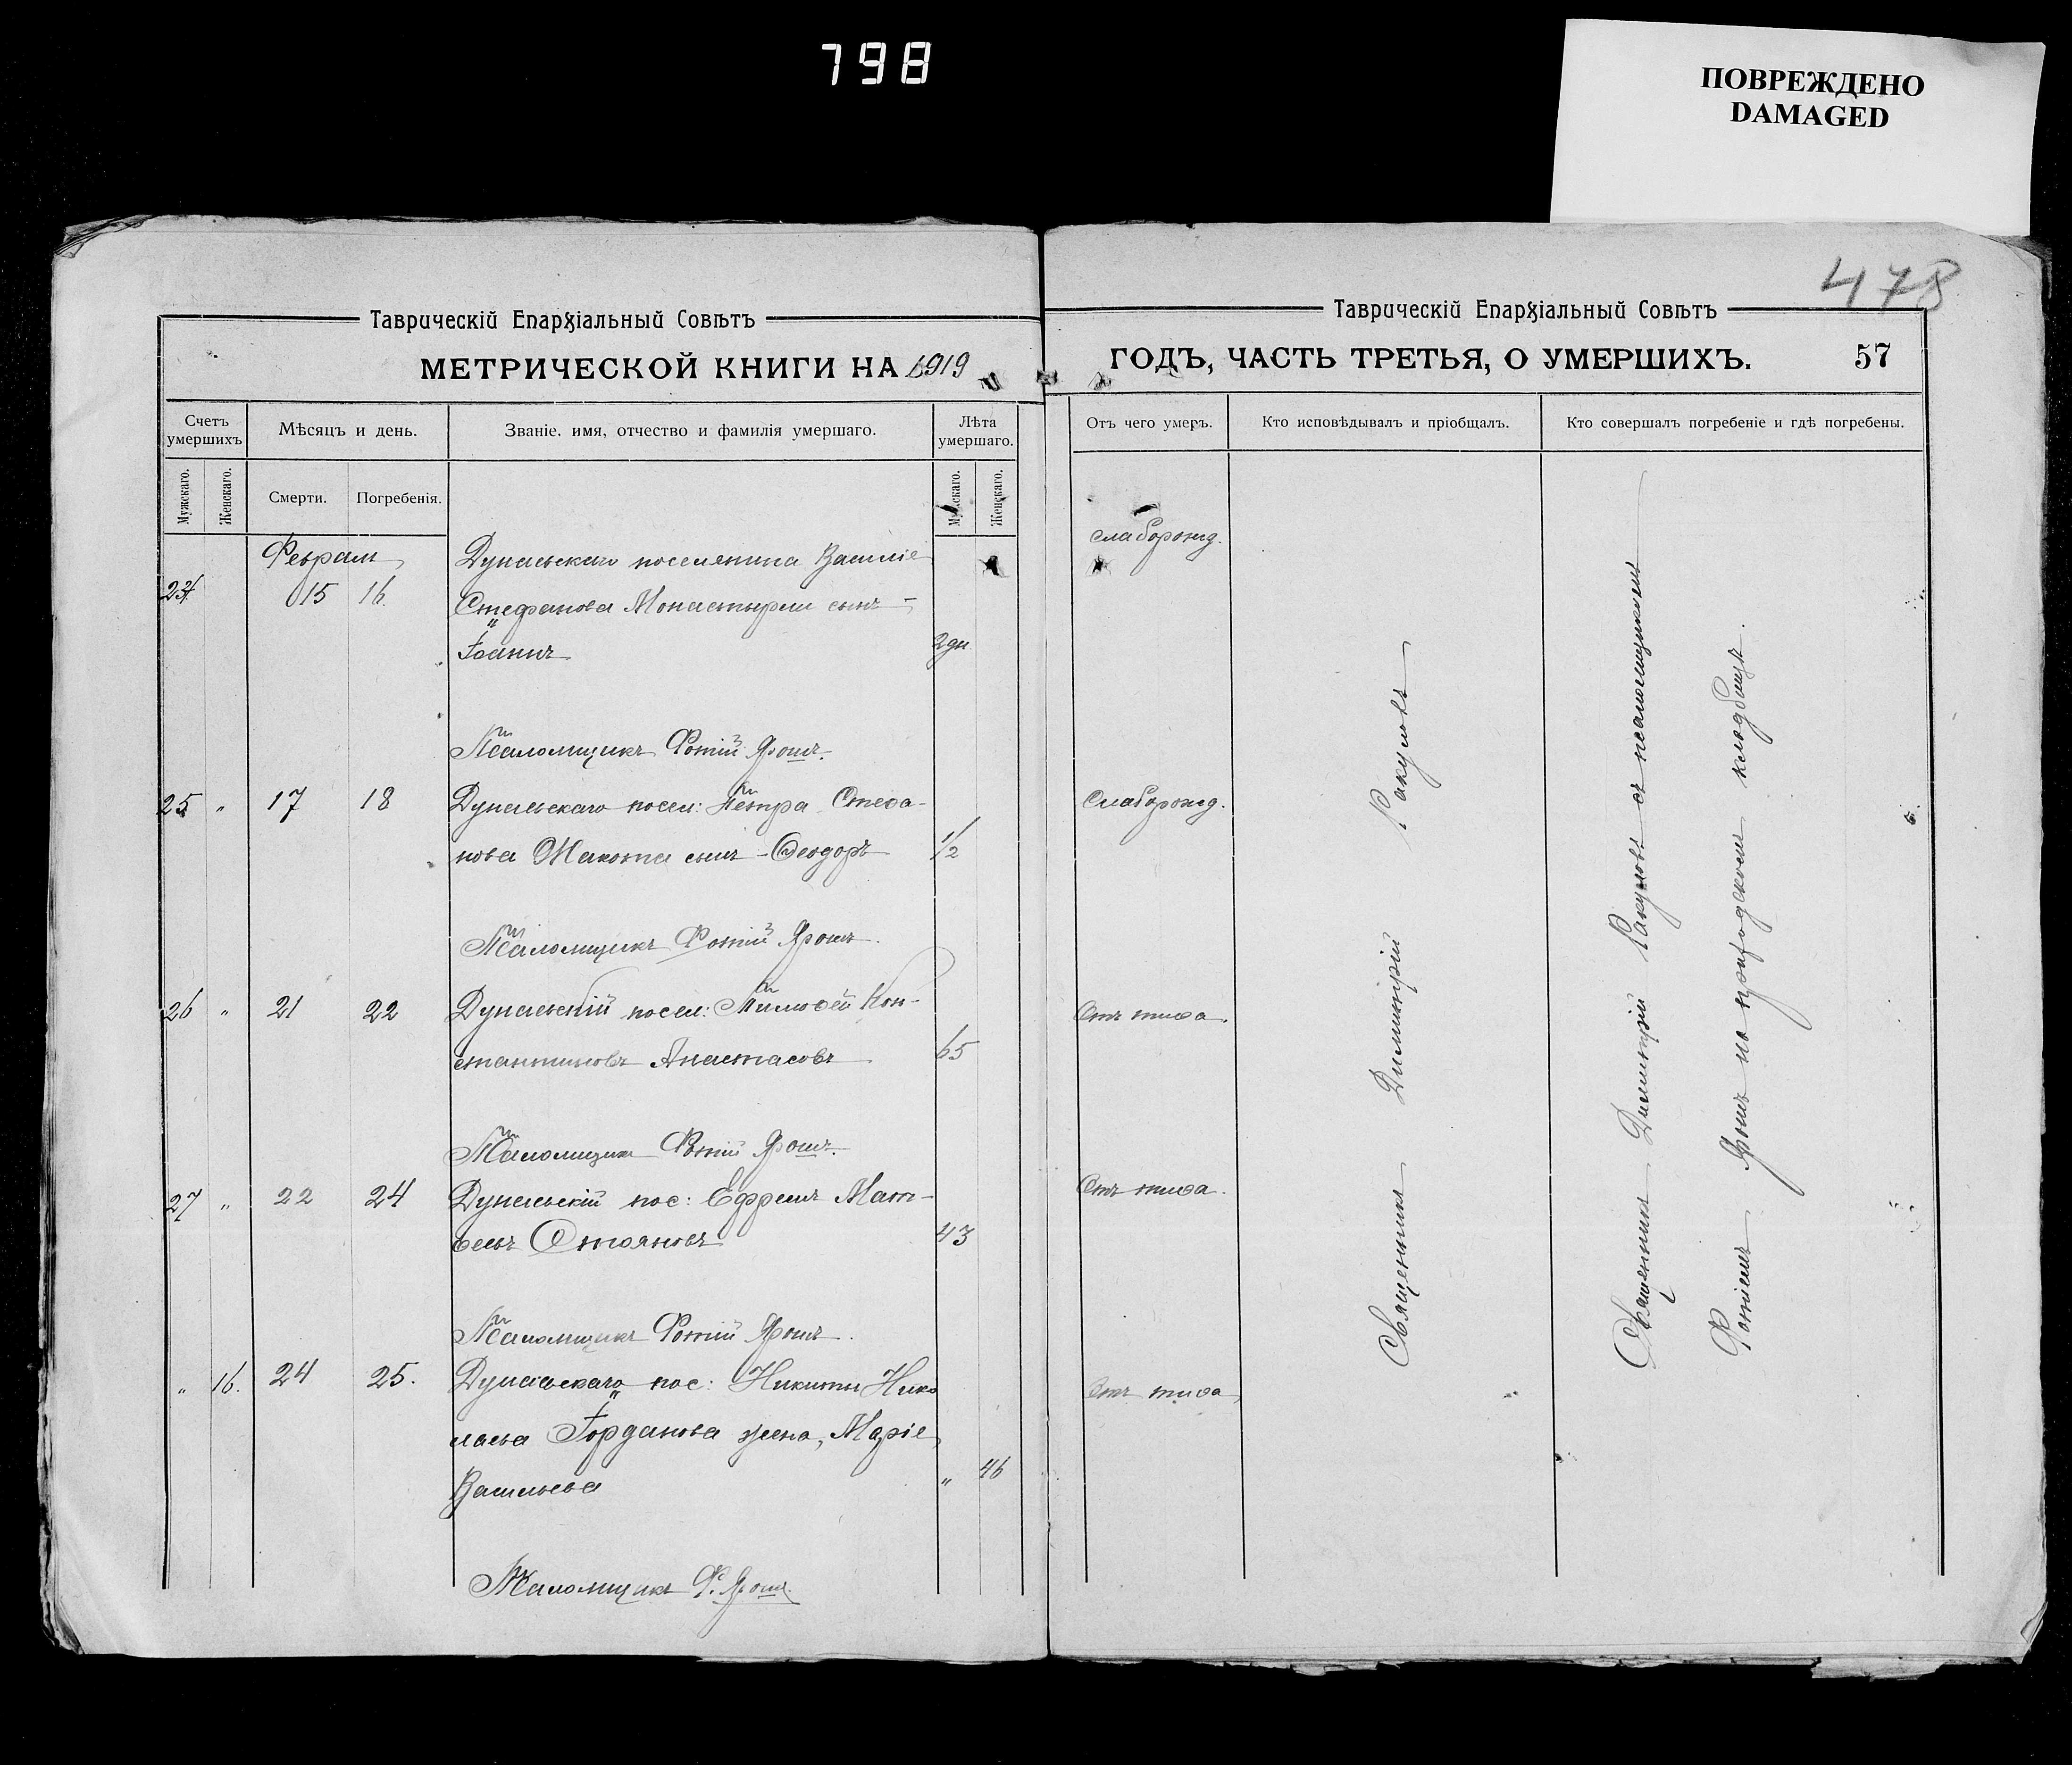 798
ПОВРЕЖДЕНО
DAMAGED
478
Таврическій Епархіальный Совѣтъ
МЕТРИЧЕСКОЙ КНИГИ НА 1919
Таврическій Епархіальный Совѣтъ
ГОДЪ, ЧАСТЬ ТРЕТЬЯ, О УМЕРШИХЪ.
57
Счетъ умершихъ
Мѣсяцъ и день.
Званіе, имя, отчество и фамилія умершаго.
Лѣта умершаго.
Отъ чего умеръ.
Кто исповѣдывалъ и пріобщалъ.
Кто совершалъ погребеніе и гдѣ погребены.
Мужскаго.
Женскаго.
Смерти.
Погребенія.
Мужскаго.
Женскаго.
Февраль
Дунаевскаго поселянина Василія
слаборожд.
24 15 16.
Стефанова Монастырли сынъ –
Іоаннъ 2 дн
Псаломщикъ Фотій Ярошъ.
25 " 17 18 Дунаевскаго посел: Петра Стефа-
Слаборожд.
нова Жакота сынъ – Ѳеодоръ 1/2
Псаломщикъ Фотій Ярошъ.
26 " 21 22 Дунаевскій посел: Тимоѳей Кон-
Отъ тифа.
стантиновъ Анастасовъ 65
Псаломщикъ Фотій Ярошъ.
27 " 22 24 Дунаевскій пос: Ефремъ Мат-
Отъ тифа.
веевъ Стояновъ 43
Псаломщикъ Фотій Ярошъ.
" 16. 24 25. Дунаевскаго пос: Никиты Нико
Отъ тифа
лаева Іорданова жена, Марія
Васильева " 46
Псаломщикъ Ф. Ярошъ.
Священникъ Димитрій Какуловъ
Священникъ Димитрій Какуловъ съ псаломщикомъ
Фотіемъ Ярошъ на приходскомъ кладбищѣ.